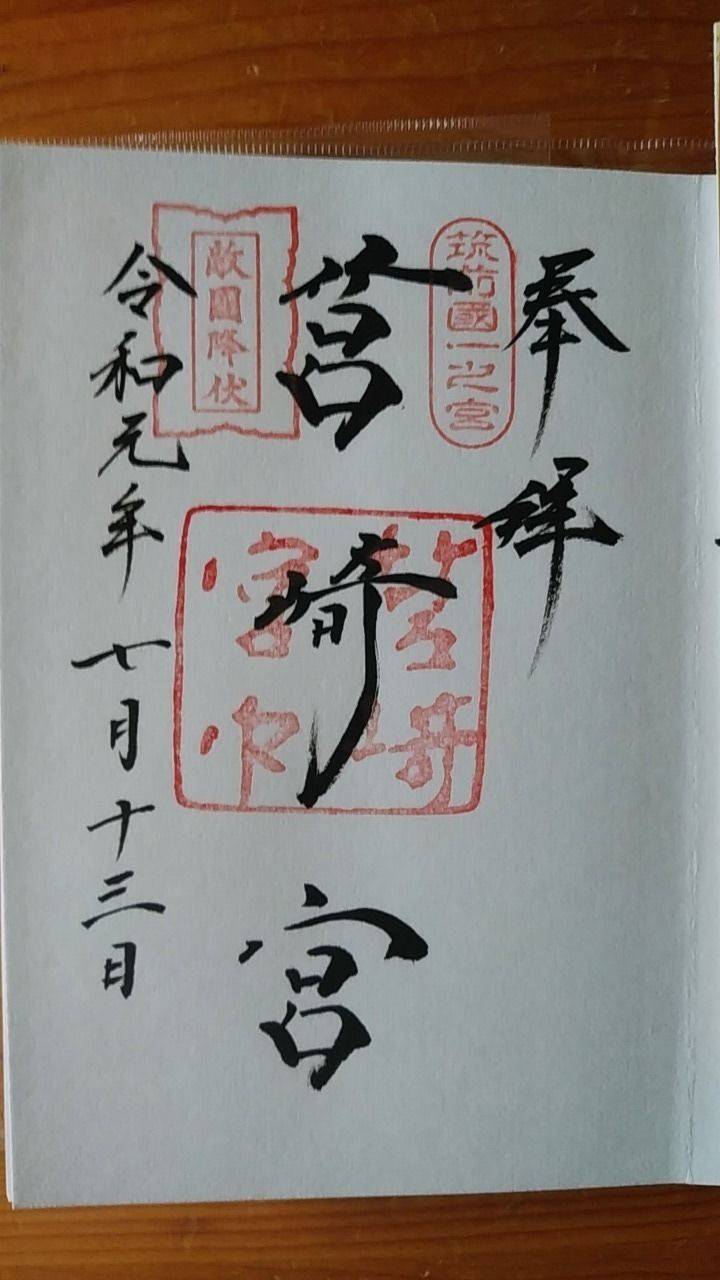 奉拝
筑前國一之宮
筥崎宮
筥崎
宮印
敵國降伏
令和元年七月十三日